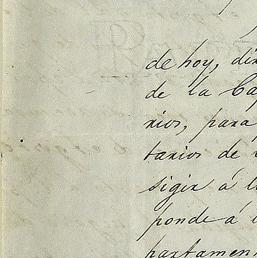 de hoy, di
de la Ca
rios, para
tarios de
sigir á l
ponde á
partamen